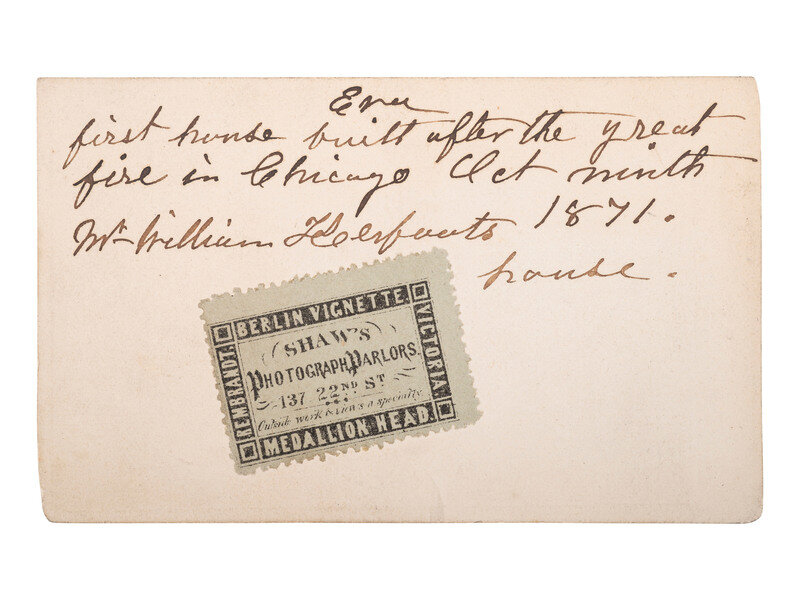 Ever
first house built after the great
fire in Chicago Oct ninth
Mr William Kerfoots 1871.
house.
BERLIN VIGNETTE.
REMBRANDT.
VICTORIA.
SHAW'S
PHOTOGRAPH PARLORS.
137 22ND ST
Outside work & views a specialty
MEDALLION HEAD.